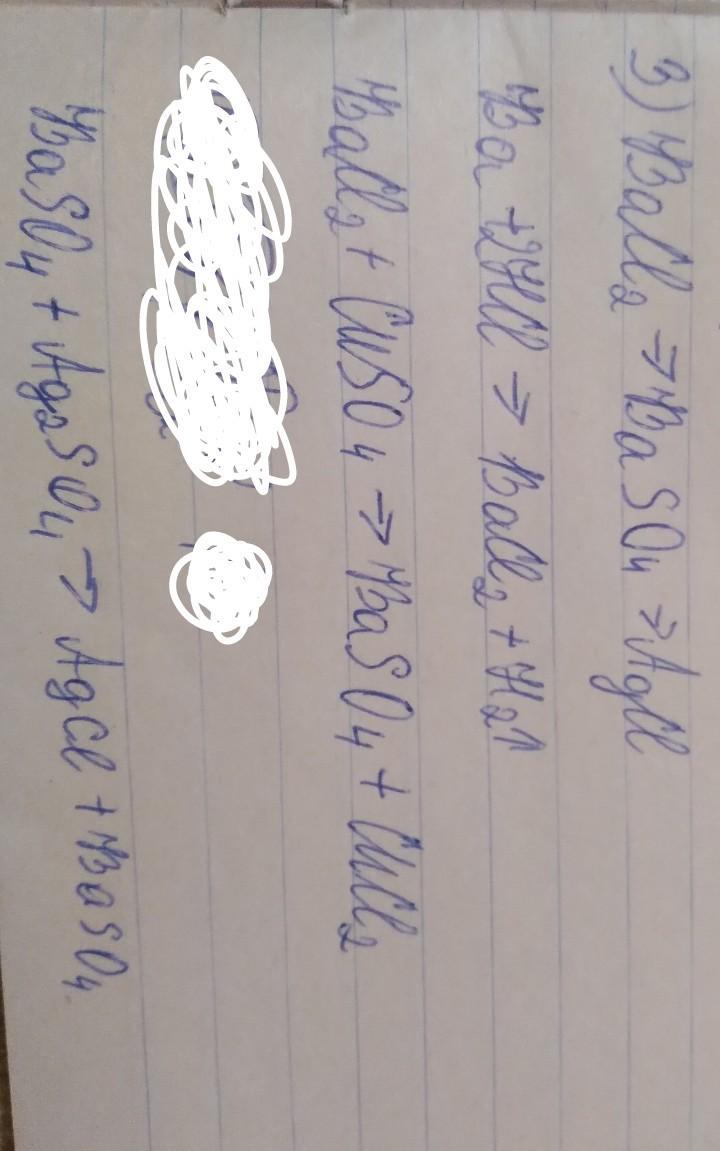 3) BaCl₂ ⇒ BaSO₄ ⇒ AgCl
Ba + 2HCl ⇒ BaCl₂ + H₂↑
BaCl₂ + CuSO₄ ⇒ BaSO₄ + CuCl₂
BaSO₄ + Ag₂SO₄ → AgCl + BaSO₄